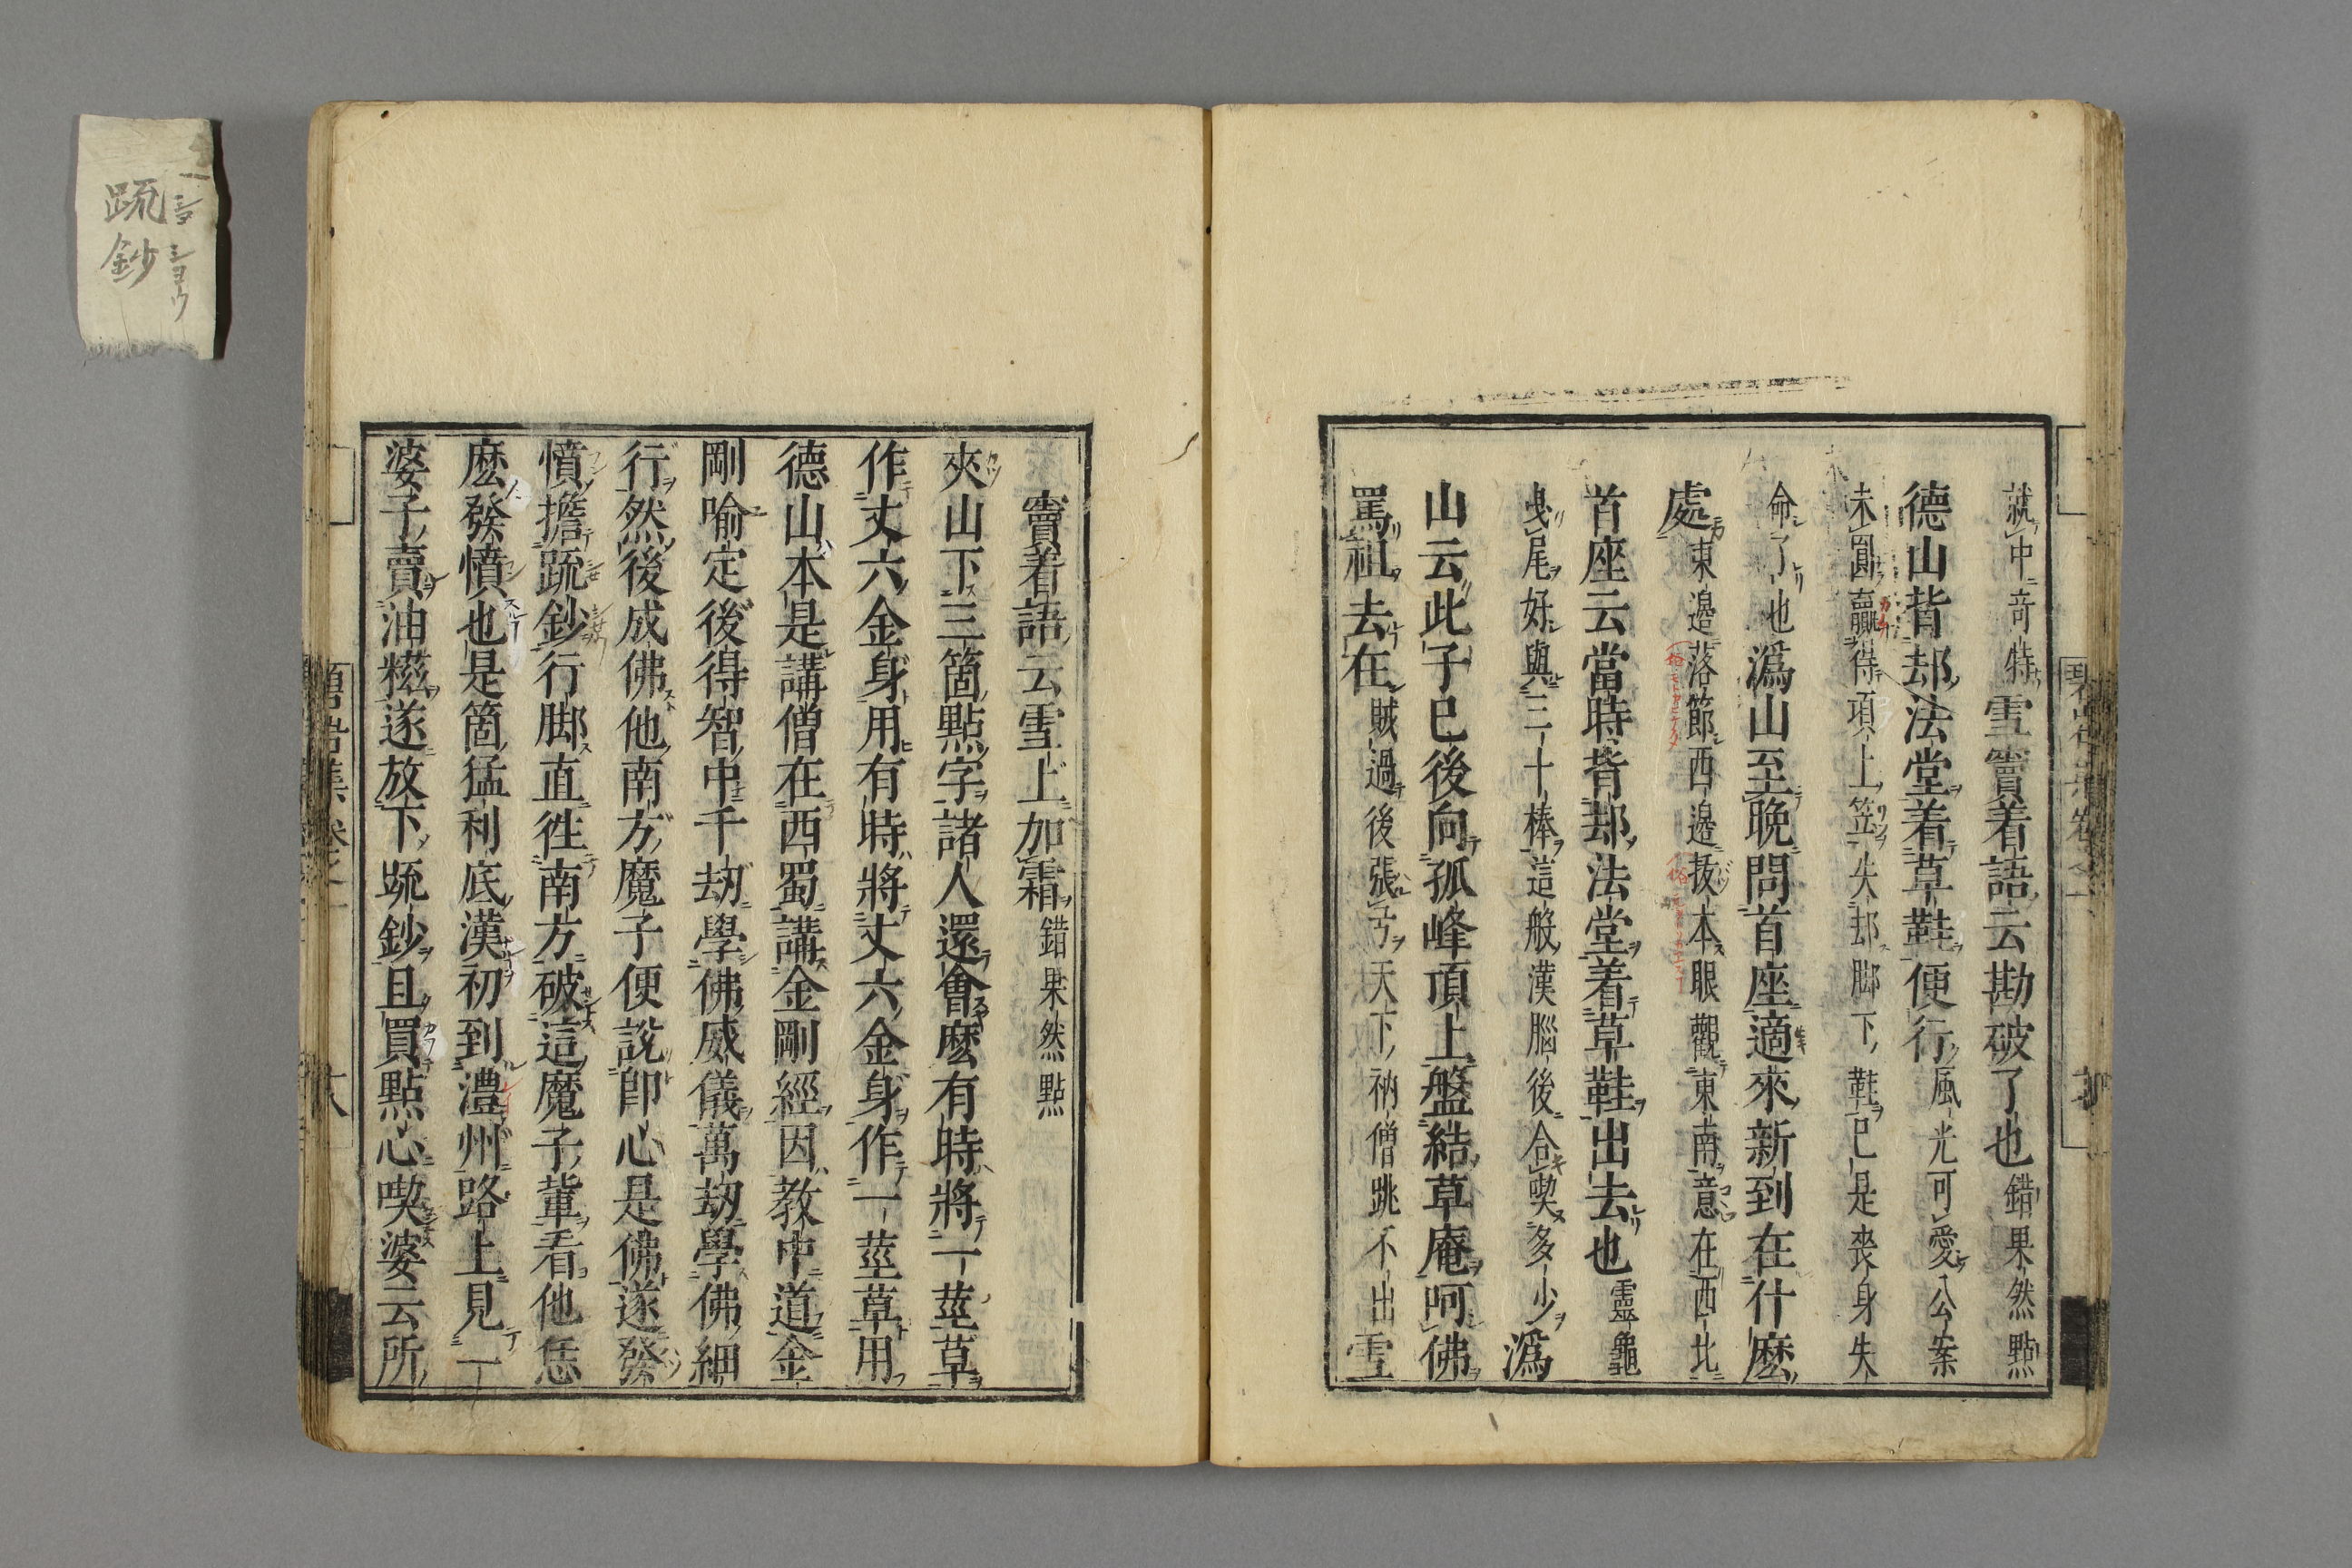 就中奇特雪竇着語云勘破了也錯果然點
德山背却法堂着草鞋便行風光可愛公案
未圓贏得項上笠失却脚下鞋已是喪身失
命了也潙山至晩問首座適來新到在什麽
處東邊落節西邊拔本眼觀東南意在西北
首座云當時背却法堂着草鞋出去也靈龜
曳尾好與三十棒這般漢腦後合喫多少潙
山云此子已後向孤峰頂上盤結草庵呵佛
罵祖去在賊過後張弓天下衲僧跳不出雪
竇着語云雪上加霜錯果然點
夾山下三箇點字諸人還會麽有時將一莖草
作丈六金身用有時將丈六金身作一莖草用
德山本是講僧在西蜀講金剛經因教中道金
剛喻定後得智中千劫學佛威儀萬劫學佛細
行然後成佛他南方魔子便說卽心是佛遂發
憤擔疏鈔行脚直徃南方破這魔子輩看他恁
麽發憤也是箇猛利底漢初到澧州路上見一
婆子賣油糍遂放下疏鈔且買點心喫婆云所
疏鈔
ショウ